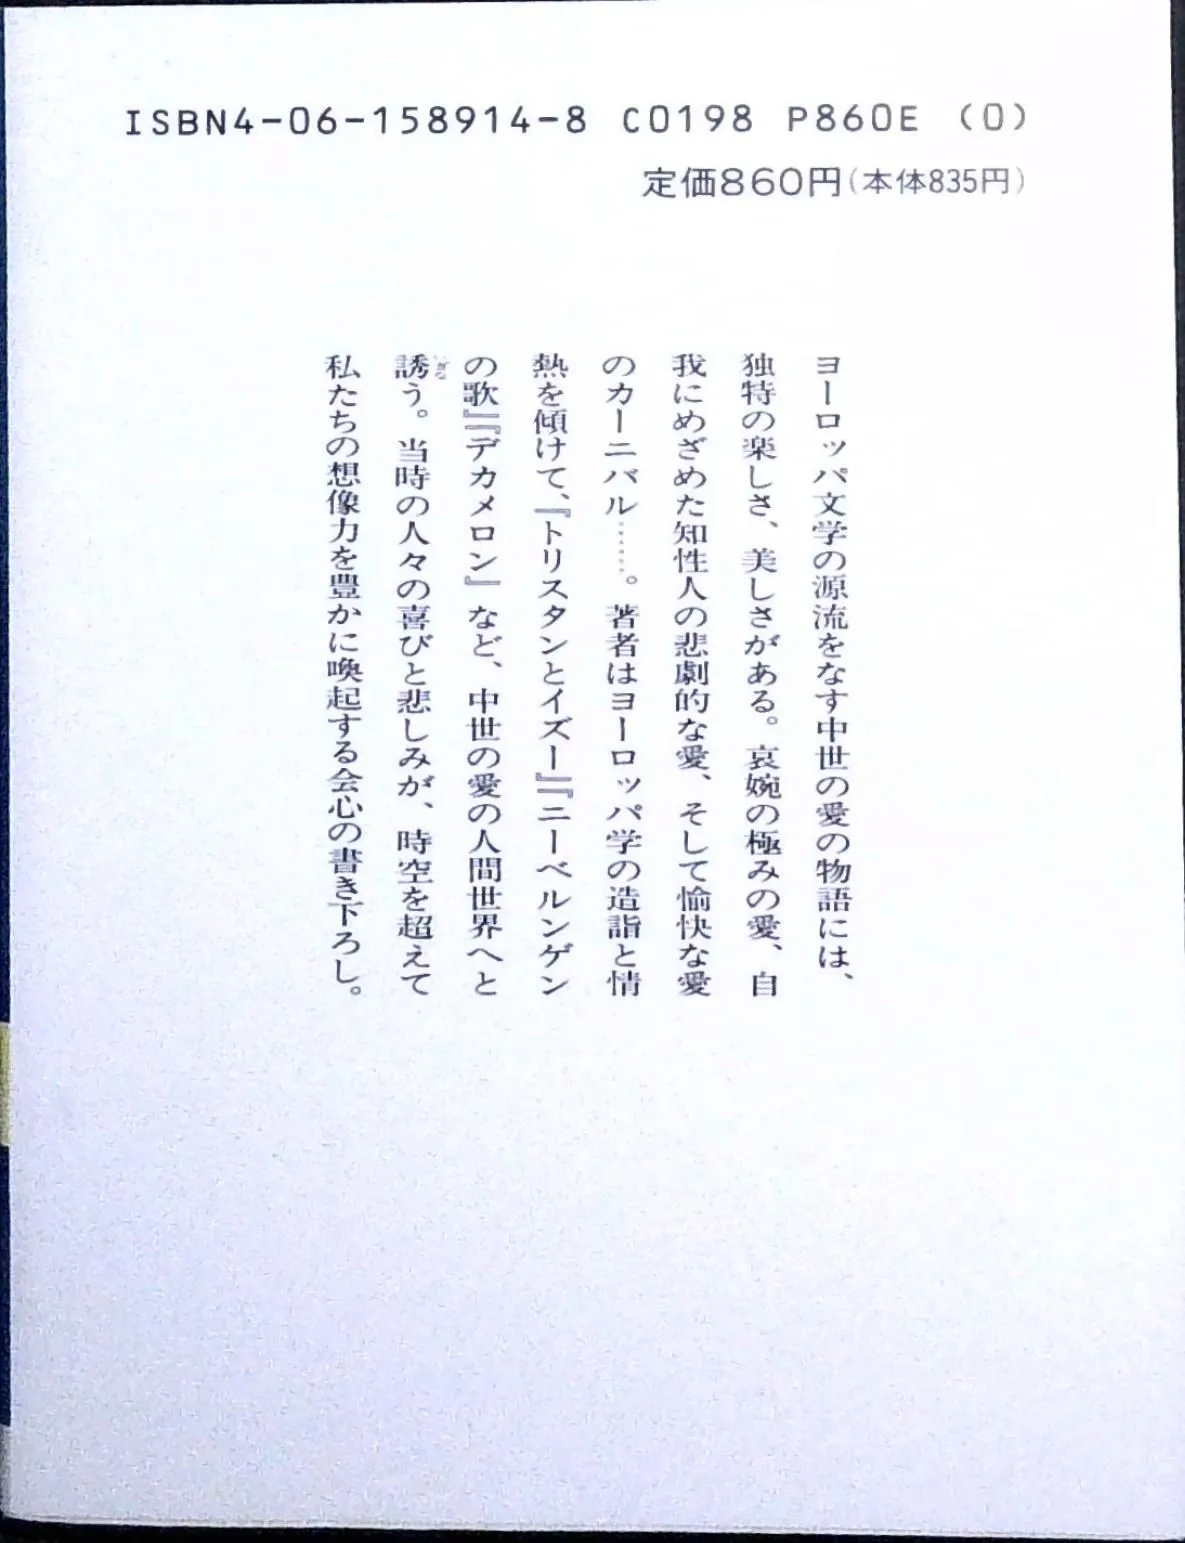 ISBN4-06-158914-8 C0198 P860E (0)
定価860円(本体835円)
ヨーロッパ文学の源流をなす中世の愛の物語には、
独特の楽しさ、美しさがある。哀婉の極みの愛、自
我にめざめた知性人の悲劇的な愛、そして愉快な愛
のカーニバル……。著者はヨーロッパ学の造詣と情
熱を傾けて、『トリスタンとイズー』『ニーベルンゲン
の歌』『デカメロン』など、中世の愛の人間世界へと
誘う。当時の人々の喜びと悲しみが、時空を超えて
私たちの想像力を豊かに喚起する会心の書き下ろし。